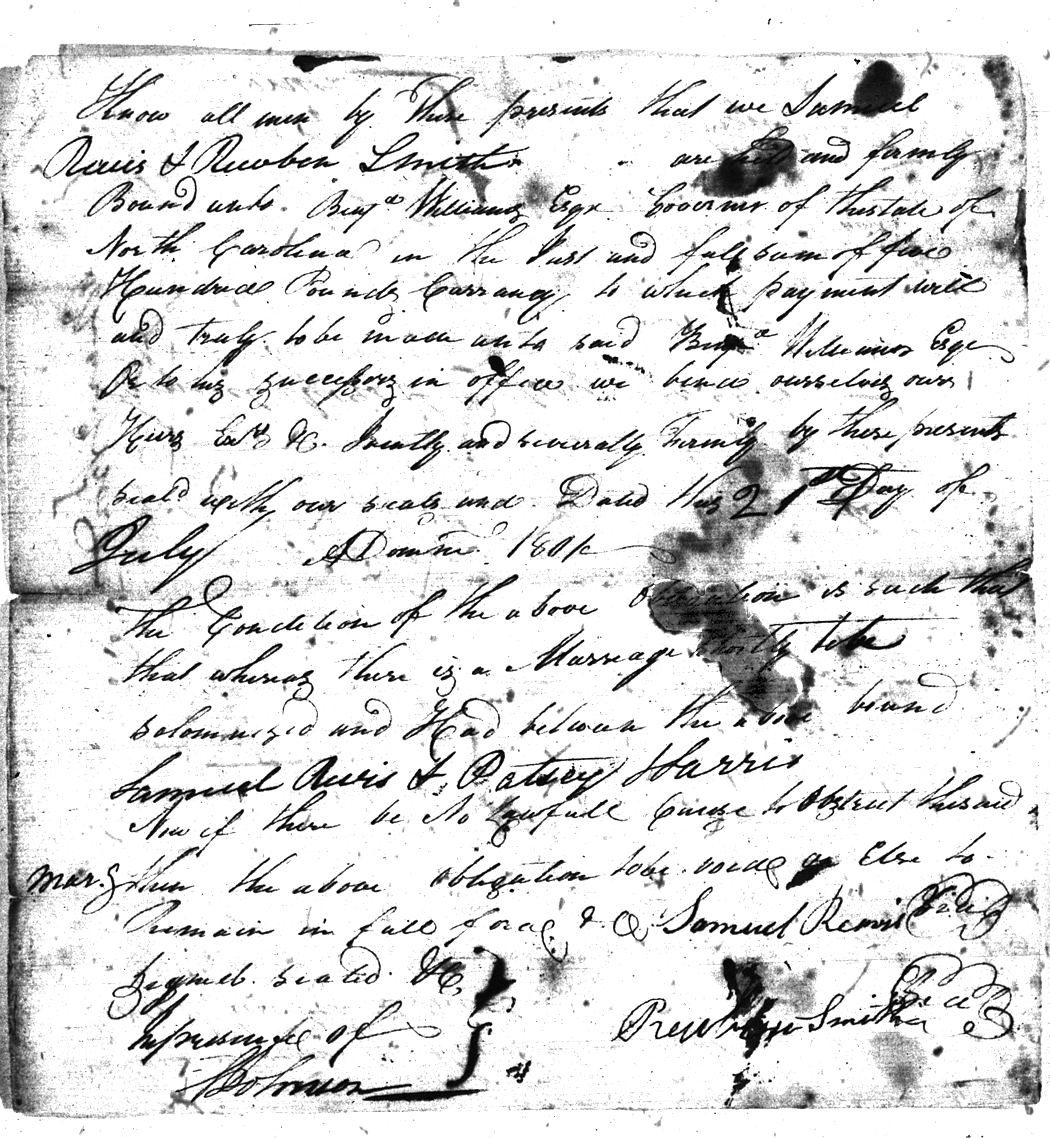 Know all men by These presents that we Samuel
Revis & Reuben Smith are held and firmly
Bound unto Benja Williams Esqr Governor of thestate of
North Carolina in the Just and full sum of five
Hundred Pounds Currancy to which payment well
and truly to be made unto said Benja Williams Esqr
Or to his successors in office we bind ourselves ours
Heirs Exrs &C. Jointly and severally Firmly by these presents
seald with our seals and Dated this 21th Day of
July ADomini 1801
The Condition of the above Obligation is such that
that whereas there is a Marriage shortly to be
solomnized and Had between the above bound
Samuel Revis & Patsey Harris
Now if there be No Lawfull Cause to Obstruct thesaid
mar.g then the above obligation tobe void or Else to
Remain in full force & C Samuel Revis
Signed seald &C
Inpresence of Reuben Smith